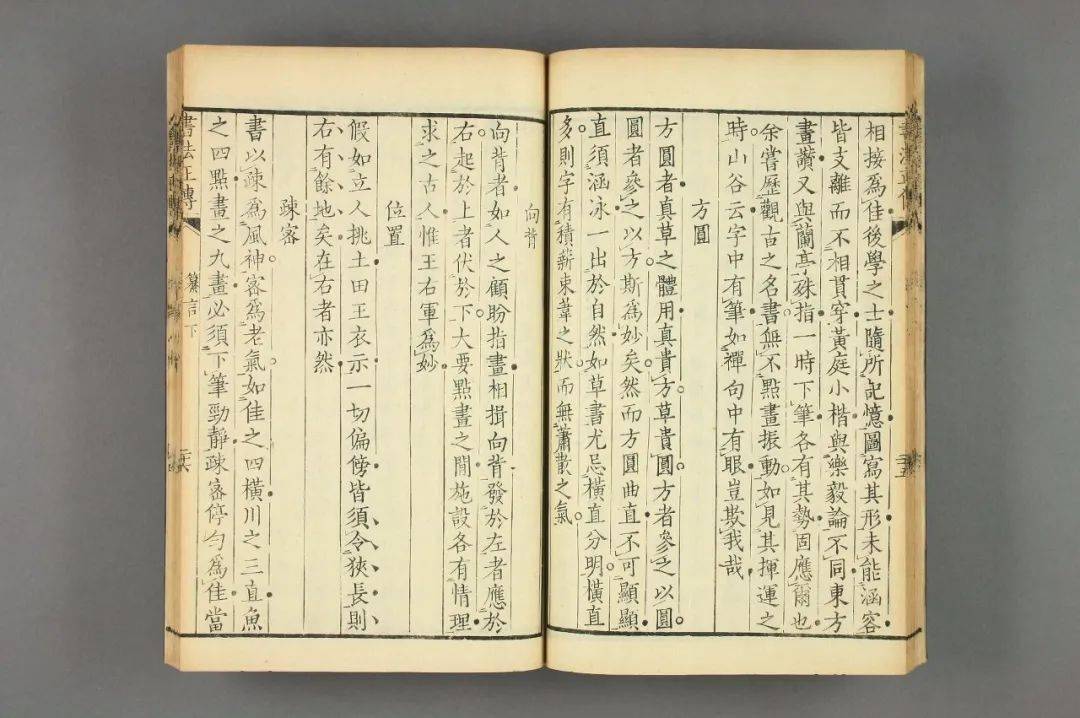 相接爲佳後學之士隨所記憶圖寫其形未能涵容
皆支離而不相貫穿黃庭小楷與樂毅論不同東方
畫讚又與蘭亭殊指一時下筆各有其勢固應爾也
余嘗歷觀古之名書無不點畫振動如見其揮運之
時山谷云字中有筆如禪句中有眼豈欺我哉
方圓
方圓者眞草之體用眞貴方草貴圓方者參之以圓
圓者參之以方斯爲妙矣然而方圓曲直不可顯顯
直須涵泳一出於自然如草書尤忌橫直分明橫直
多則字有積薪束葦之狀而無蕭散之氣
向背
向背者如人之顧盼指畫相揖向背發於左者應於
右起於上者伏於下大要點畫之閒施設各有情理
求之古人惟王右軍爲妙
位置
假如立人挑土田王衣示一切偏傍皆須令狹長則
右有餘地矣在右者亦然
疎密
書以疎爲風神密爲老氣如佳之四橫川之三直魚
之四點畫之九畫必須下筆勁靜疎密停勻爲佳當
書法正傳
纂言下
二十六